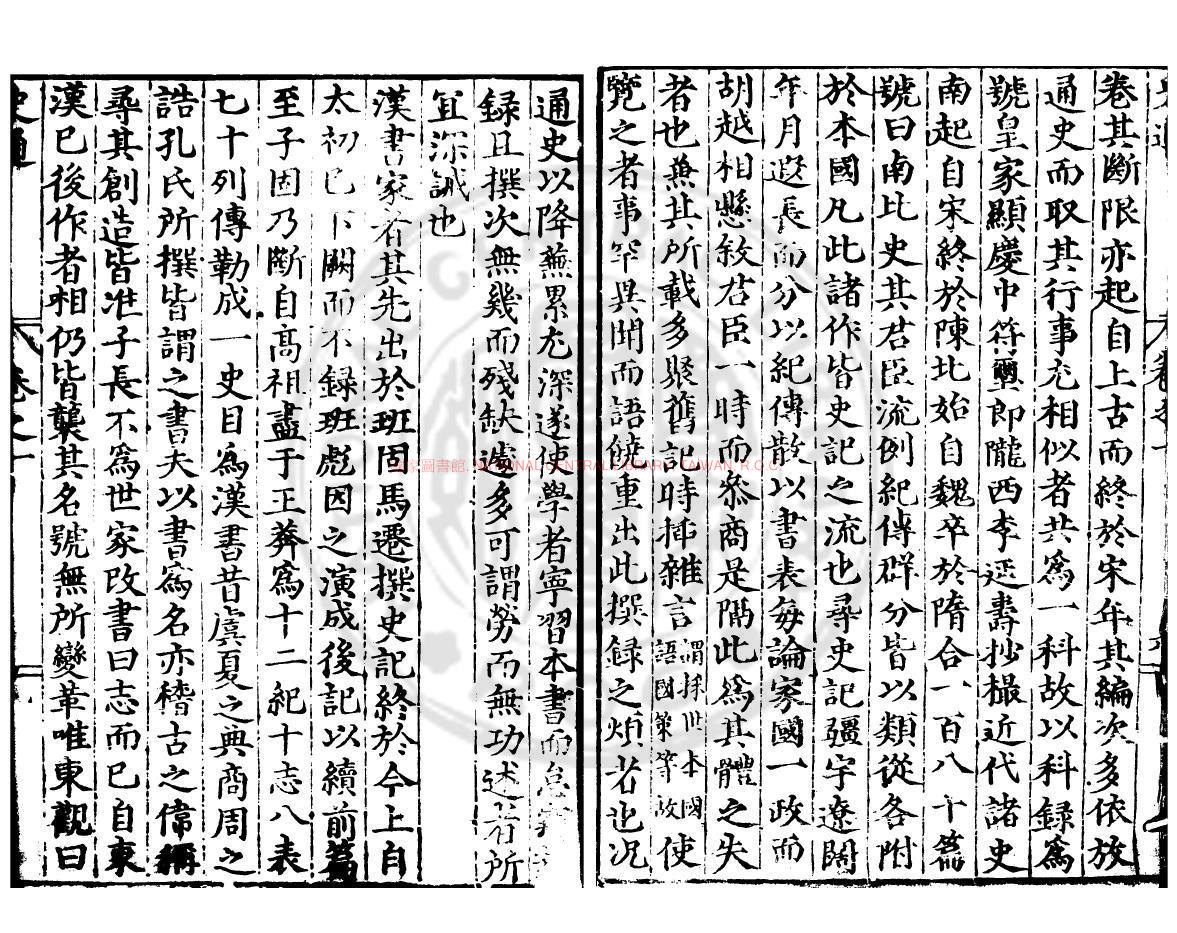 卷其斷限亦起自上古而終於宋年其編次多依放
通史而取其行事尤相似者共為一科故以科録為
號皇家顯慶中符璽郎隴西李延壽抄撮近代諸史
南起自宋終於陳北始自魏卒於隋合一百八十篇
號曰南北史其君臣流例紀傳群分皆以類從各附
於本國凡此諸作皆史記之流也尋史記疆宇遼闊
年月遐長而分以紀傳散以書表每論家國一政而
胡越相懸敘君臣一時而叅商是隔此為其體之失
者也兼其所載多聚舊記時揷雜言謂採世本國語國策等故使
覽之者事罕異聞而語饒重出此撰録之煩者也况
通史以降蕪累尤深遂使學者寧習本書而怠
録且撰次無幾而殘缺遽多可謂勞而無功述者所
宜深誡也
漢書家者其先出於班固馬遷撰史記終於今上自
太初已下闕而不録班彪因之演成後記以續前篇
至子固乃斷自高祖盡于王莽為十二紀十志八表
七十列傳勒成一史目為漢書昔虞夏之典商周之
誥孔氏所撰皆謂之書夫以書為名亦稽古之偉稱
尋其創造皆准子長不為世家改書曰志而已自東
漢已後作者相仍皆襲其名號無所變革唯東觀曰
史通
卷之一
國家圖書館, NATIONAL CENTRAL LIBRARY, TAIWAN, R.O.C.